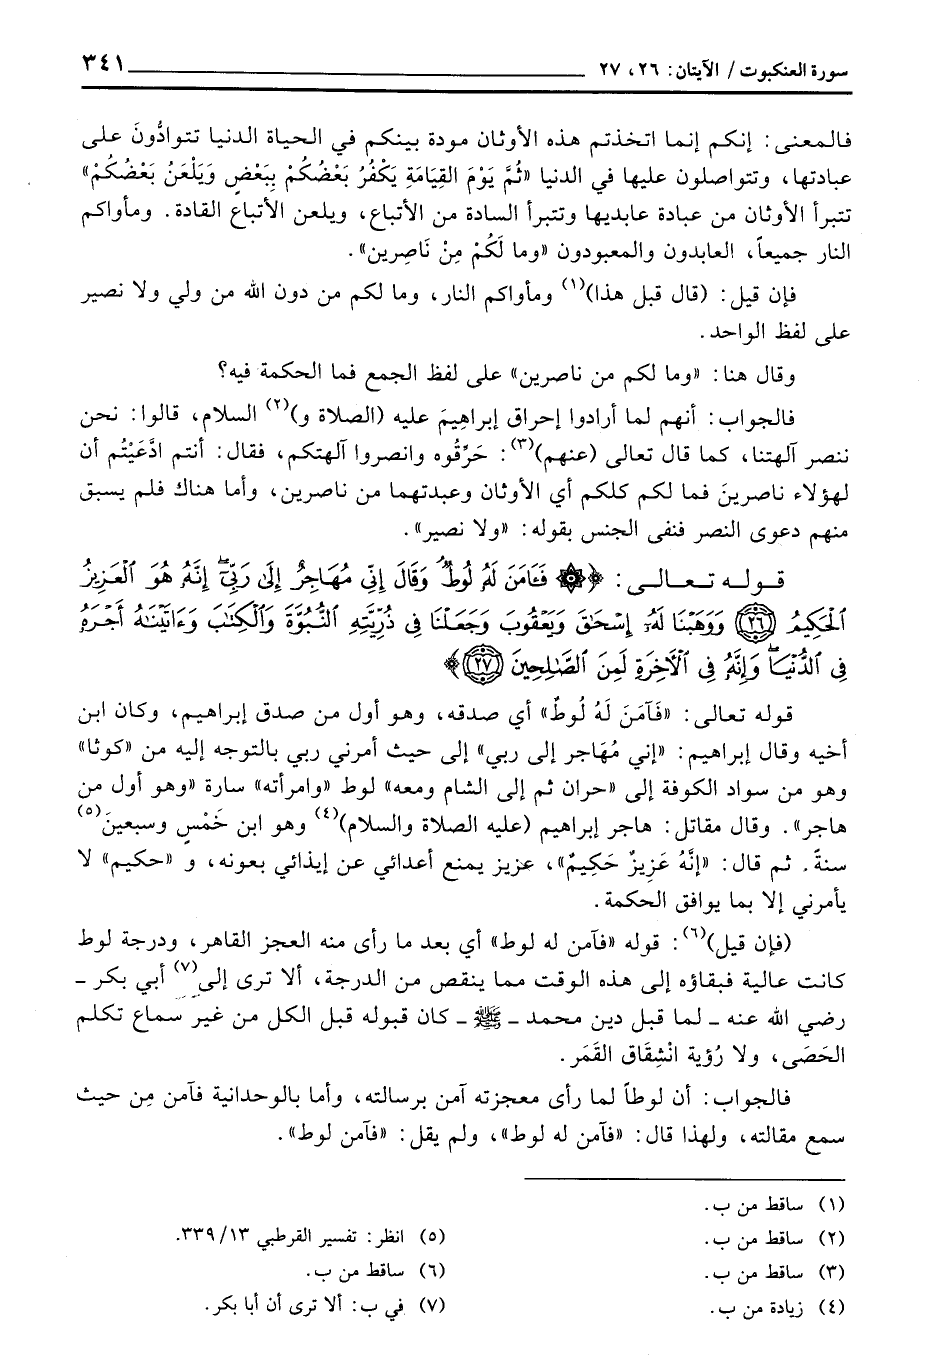 سورة العنكبوت / الآيتان: ٢٦، ٢٧ ٣٤١
فالمعنى: إنكم إنما اتخذتم هذه الأوثان مودة بينكم في الحياة الدنيا تتوادُّونَ على
عبادتها، وتتواصلون عليها في الدنيا «ثُمَّ يَوْمَ القِيَامَةِ يَكْفُرُ بَعْضُكُمْ بِبَعْضٍ وَيَلْعَنُ بَعْضُكُمْ»
تتبرأ الأوثان من عبادة عابديها وتتبرأ السادة من الأتباع، ويلعن الأتباع القادة. ومأواكم
النار جميعاً، العابدون والمعبودون «وما لَكُمْ مِنْ نَاصِرين».
فإن قيل: (قال قبل هذا)(١) ومأواكم النار، وما لكم من دون الله من ولي ولا نصير
على لفظ الواحد.
وقال هنا: «وما لكم من ناصرين» على لفظ الجمع فما الحكمة فيه؟
فالجواب: أنهم لما أرادوا إحراق إبراهيمَ عليه (الصلاة و)(٢) السلام، قالوا: نحن
ننصر آلهتنا، كما قال تعالى (عنهم)(٣): حَرِّقُوه وانصروا آلهتكم، فقال: أنتم ادَّعَيْتُم أن
لهؤلاء ناصرينَ فما لكم كلكم أي الأوثان وعبدتهما من ناصرين، وأما هناك فلم يسبق
منهم دعوى النصر فنفى الجنس بقوله: «ولا نصير».
قوله تعالى: ﴿۞ فَـَٔامَنَ لَهُۥ لُوطٌۘ وَقَالَ إِنِّى مُهَاجِرٌ إِلَىٰ رَبِّىٓۖ إِنَّهُۥ هُوَ ٱلْعَزِيزُ
ٱلْحَكِيمُ ٢٦ وَوَهَبْنَا لَهُۥٓ إِسْحَٰقَ وَيَعْقُوبَ وَجَعَلْنَا فِى ذُرِّيَّتِهِ ٱلنُّبُوَّةَ وَٱلْكِتَٰبَ وَءَاتَيْنَٰهُ أَجْرَهُۥ
فِى ٱلدُّنْيَاۖ وَإِنَّهُۥ فِى ٱلْـَٔاخِرَةِ لَمِنَ ٱلصَّٰلِحِينَ ٢٧﴾
قوله تعالى: «فَآمَنَ لَهُ لُوطٌ» أي صدقه، وهو أول من صدق إبراهيم، وكان ابن
أخيه وقال إبراهيم: «إني مُهَاجر إلى ربي» إلى حيث أمرني ربي بالتوجه إليه من «كوثا»
وهو من سواد الكوفة إلى «حران ثم إلى الشام ومعه» لوط «وامرأته» سارة «وهو أول من
هاجر». وقال مقاتل: هاجر إبراهيم (عليه الصلاة والسلام)(٤) وهو ابن خَمْسٍ وسبعينَ(٥)
سنةً. ثم قال: «إنَّهُ عَزِيزٌ حَكِيمٌ»، عزيز يمنع أعدائي عن إيذائي بعونه، و «حكيم» لا
يأمرني إلا بما يوافق الحكمة.
(فإن قيل)(٦): قوله «فآمن له لوط» أي بعد ما رأى منه العجز القاهر، ودرجة لوط
كانت عالية فبقاؤه إلى هذه الوقت مما ينقص من الدرجة، ألا ترى إلى(٧) أبي بكر -
رضي الله عنه - لما قبل دين محمد - ﷺ - كان قبوله قبل الكل من غير سماع تكلم
الحَصَى، ولا رُؤية انْشِقَاق القَمَر.
فالجواب: أن لوطاً لما رأى معجزته آمن برسالته، وأما بالوحدانية فآمن مِن حيث
سمع مقالته، ولهذا قال: «فآمن له لوط»، ولم يقل: «فآمن لوط».
(١) ساقط من ب.
(٢) ساقط من ب.
(٣) ساقط من ب.
(٤) زيادة من ب.
(٥) انظر: تفسير القرطبي ١٣/ ٣٣٩.
(٦) ساقط من ب.
(٧) في ب: ألا ترى أن أبا بكر.